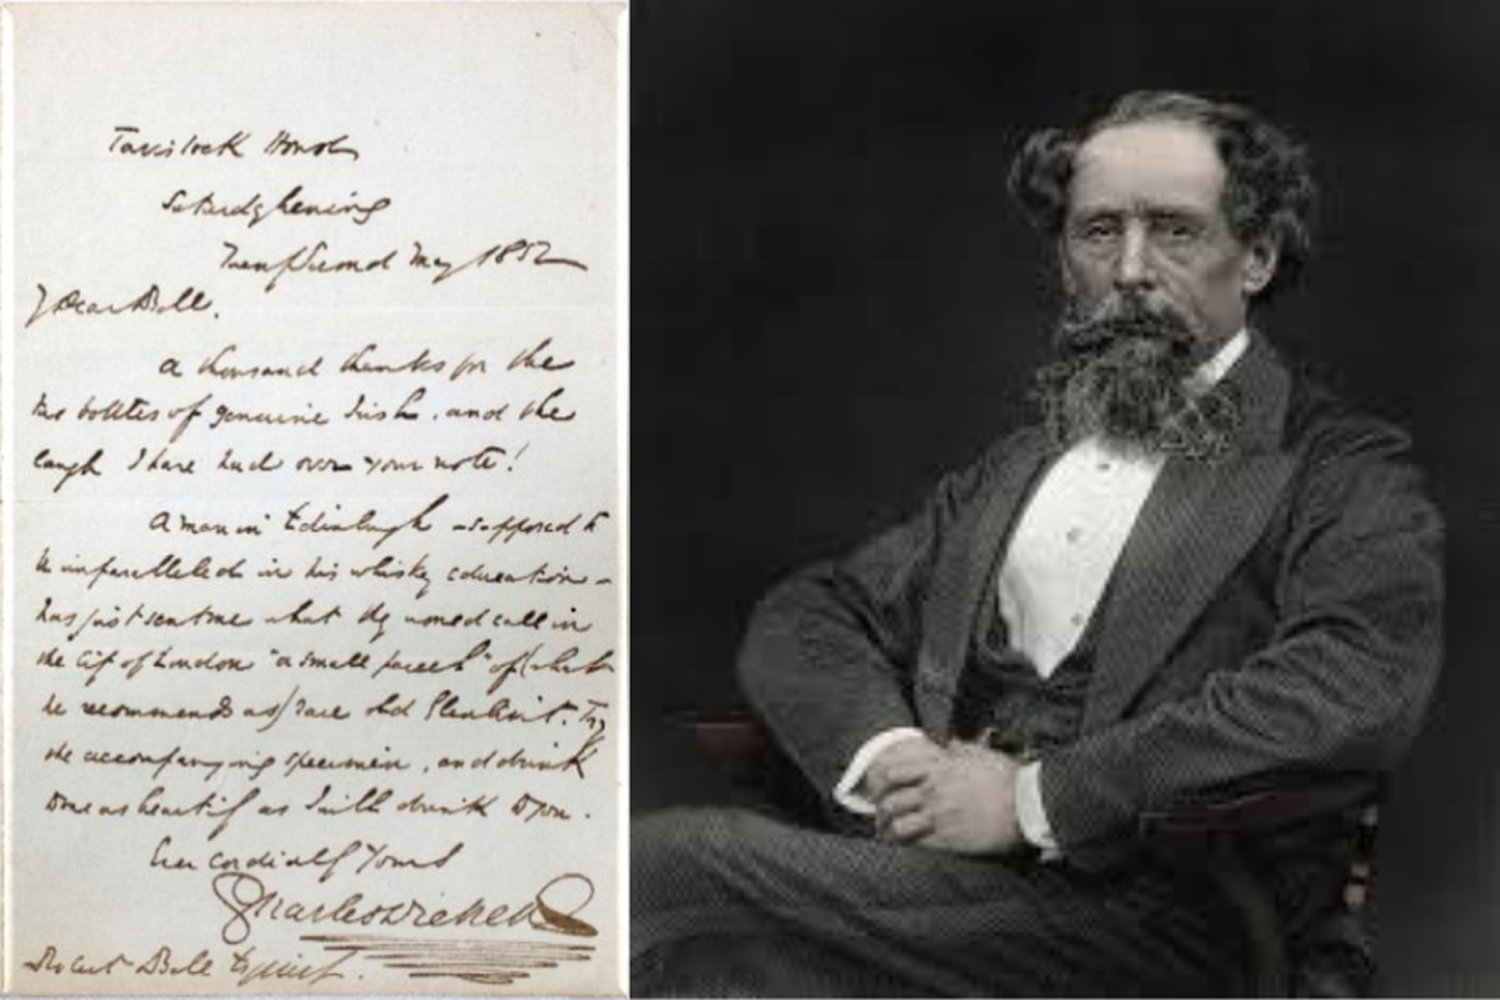 Tavistock House
Saturday Evening
Twenty Second May 1852
My Dear Bell.
A thousand thanks for the
two bottles of genuine Irish, and the
laugh I have had over your note!
A man in Edinburgh - supposed to
be unparalleled in his whisky education -
has just sent me what they would call in
the City of London "a small parcel" of (what
he recommends as) rare old Glenlivet. Try
the accompanying specimen, and drink
to me as heartily as I will drink to you.
Ever cordially Yours
Charles Dickens
Robert Bell Esquire.